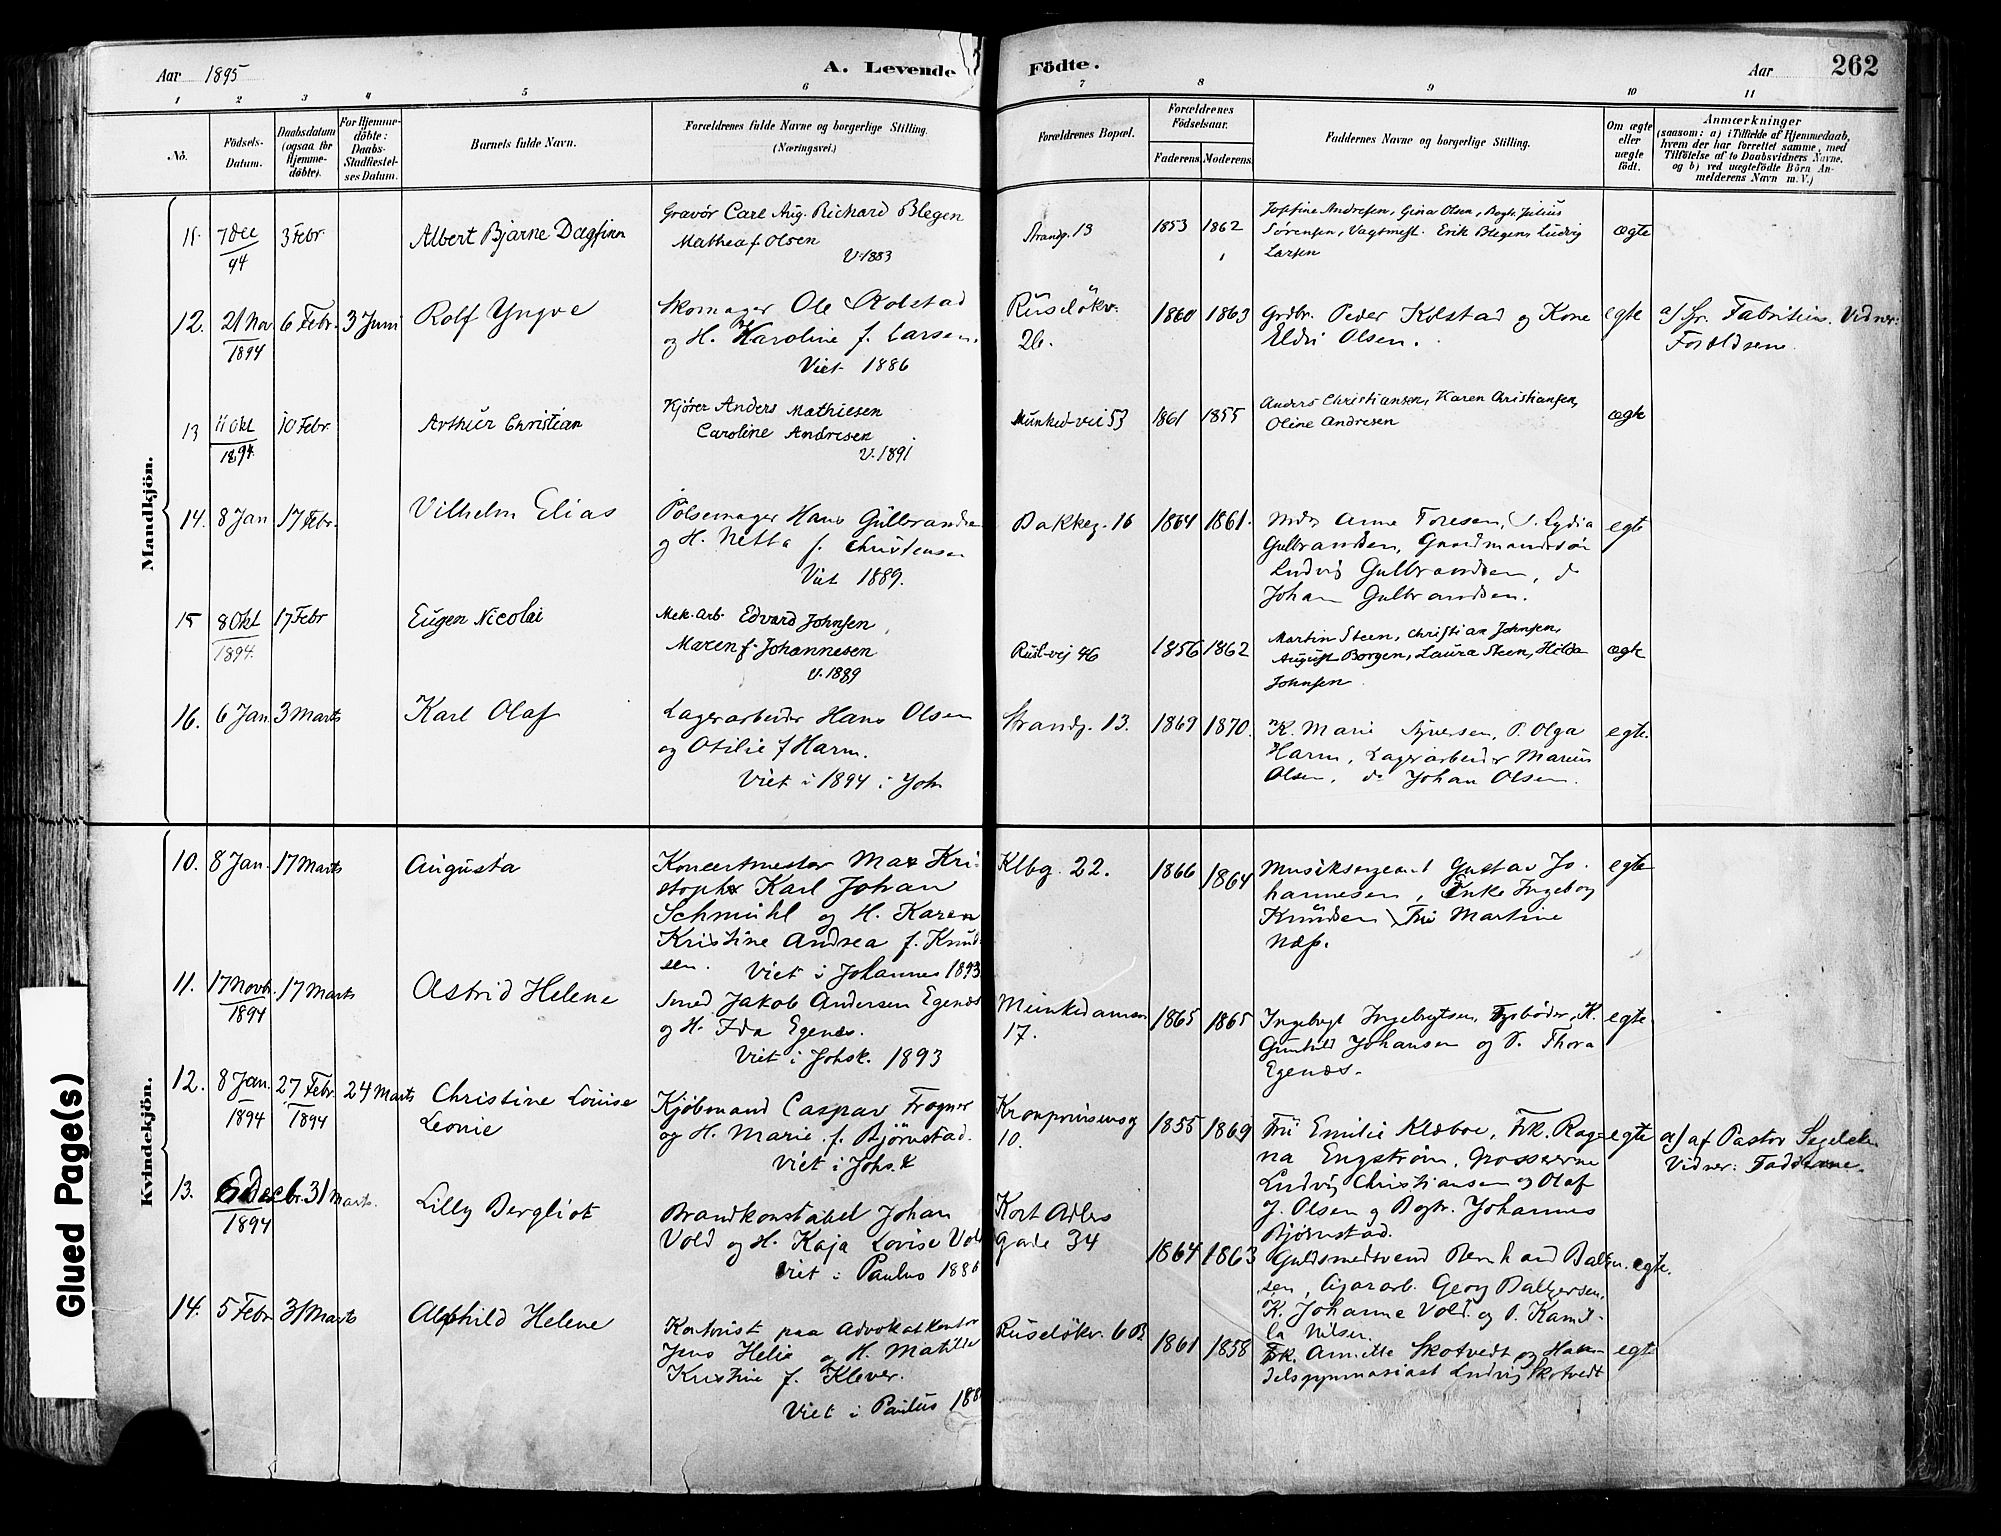 Aar 1895
A. Levende
Födte.
Aar
262
1 2 3 4 5 6 7 8 9 10 11
No.
Födsels-
Datum.
Daabsdatum
(ogsaa for
Hjemme-
döbte).
For Hjemme-
döbte:
Daabs-
Stadfæstel-
ses Datum.
Barnets fulde Navn.
Forældrenes fulde Navne og borgerlige Stilling.
(Næringsvei.)
Forældrenes Bopæl.
Forældrenes
Födselsaar.
Faderens. Moderens.
Faddernes Navne og borgerlige Stilling.
Om ægte
eller
uægte
født.
Anmærkninger
(saasom: a) i Tilfælde af Hjemmedaab,
hvem der har forrettet samme, med
Tilföielse af to Daabsvidners Navne,
og b) ved uægtefödte Börn An-
melderens Navn m. V.)
Mandkjön.
11. 7 Dec
94
3 Febr
Albert Bjarne Dagfinn
Gravör Carl Aug. Richard Blegen
Mathea f. Olsen
V. 1883
Strandg. 13
1853 1862
Josefine Andresen, Gina Olsen, Bogh. Julius
Sørensen, Vagtmest. Erik Blegen, Ludvig
Larsen
ægte
12. 21 Nov
1894
6 Febr. 3 Juni
Rolf Yngve
Skomager Ole Kolstad
og H. Karoline f. Larsen.
Viet 1886
Ruseløkv.
26.
1860 1863
Grdbr. Peder Kolstad og Kone
Eldri Olsen.
egte
a/ Hr. Fabritius. Vidner:
Forældrene
13 11 Okt
1894.
10 Febr.
Arthur Christian
Kjører Anders Mathiesen
Caroline Andresen
V. 1891
Munked-vei 53
1861 1855
Anders Christiansen, Karen Christiansen,
Oline Andresen
ægte
14. 8 Jan 17 Febr.
Vilhelm Elias
Pølsemager Hans Gulbrandsen
og H. Netta f. Christensen
Viet 1889.
Bakkeg. 16
1864 1861.
Anne Toresen, P. Lydia
Gulbrandsen, Gaardmandssøn
Ludvig Gulbrandsen, do
Johan Gulbrandsen.
egte
15 8 Okt
1894.
17 Febr
Eugen Nicolai
Mek. Arb. Edvard Johnsen
Maren f. Johannesen
V. 1889
Rusl-vej 46
1856 1862
Martin Steen, Christian Johnsen,
August Borgen, Laura Steen, Hilda
Johnsen
ægte
16. 6 Jan. 3 Marts
Karl Olaf
Lagerarbeider Hans Olsen
og Otilie f Harm.
Viet i 1894 i Joh
Strandg. 13.
1869 1870.
K. Marie Syversen, P. Olga
Harm, Lagerarbeider Marius
Olsen, do Johan Olsen.
egte.
Kvindekjön.
10. 8 Jan. 17 Marts
Augusta
Koncertmester Max Kri-
stopher Karl Johan
Schmühl og H. Karen
Kristine Andrea f. Knud-
sen. Viet i Johannes 1893
Klbg. 22.
1866 1864
Musiksergeant Gustav Jo-
hannesen, Enke Ingeborg
Knudsen, Fru Martine
Næss.
egte
11. 17 Novbr.
1894
17 Marts
Astrid Helene
Smed Jakob Andersen Egenæs
og H. Ida Egenæs.
Viet i Johsk. 1893
Munkedamsv.
17.
1865 1865
Ingebrgt Ingebrgtsen, Fyrbøder, K.
Gunhild Johansen og P. Thora
Egenæs.
egte
12. 8 Jan.
1894
27 Febr.
1894
24 Marts
Christine Louise
Leonie
Kjøbmand Caspar Frogner
og H. Marie f. Bjørnstad.
Viet i Johs. K
Kronprinsensg
10.
1855 1869
Fru Emilie Klæboe, Frk. Rag-
na Engstrøm, Grossererne
Ludvig Christiansen og Olaf
J. Olsen og Bogtr. Johannes
Bjørnstad.
egte
a/ af Pastor Segelcke
Vidner: Fadderne.
13. 6 Decbr.
1894
31 Marts.
Lilly Bergliot
Brandkonstabel Johan
Vold og H. Kaja Lovise Vold
Viet i Paulus 1886
Kort Adlers
gade 34
1864 1863
Guldsmedsvend Bernhard Balter-
sen, Cigararb. Georg Baltzersen,
K. Johanne Vold og P. Kamil-
la Nilsen.
egte.
14. 5 Febr 31 Marts
Alfhild Helene
Kontorist paa Advokatkontor
Jens Helie og H. Matilde
Kristine f. Klever.
Viet i Paulus 188
Ruseløkv. 6 B
1861 1858
Frk. Annette Skotvedt og Han-
delsgymnasiast Ludvig Skotvedt
egte
Glued Page(s)